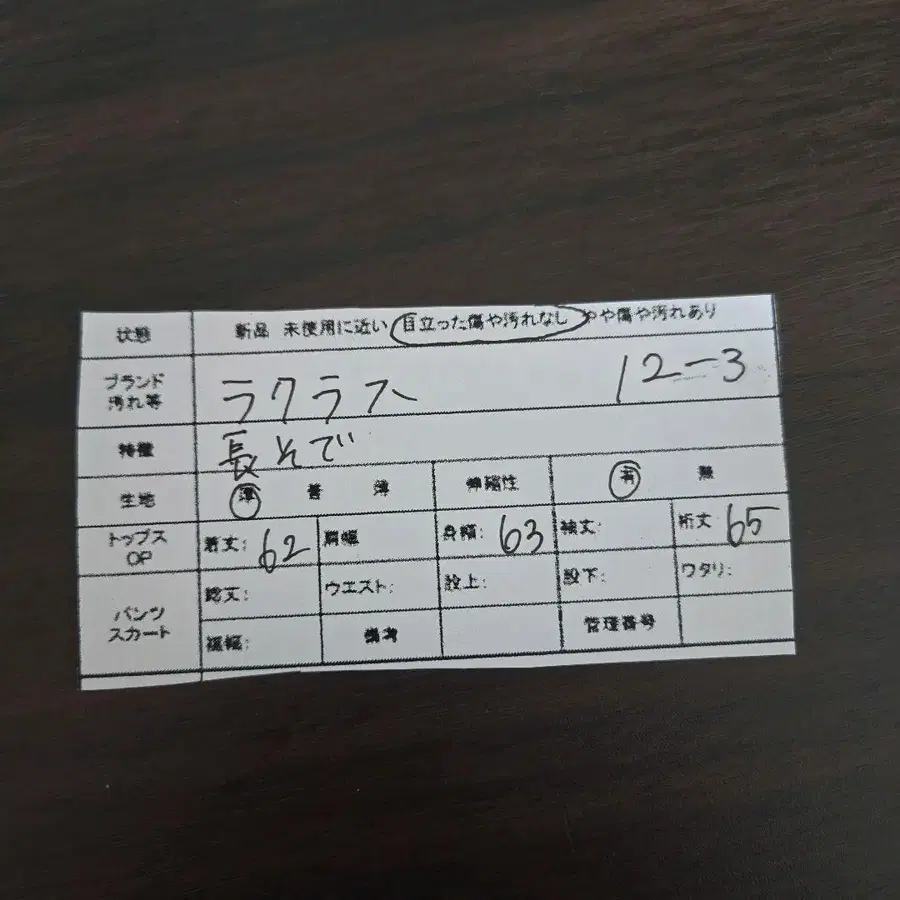 状態 新品 未使用に近い 目立った傷や汚れなし やや傷や汚れあり
ブランド 汚れ等 ラクラス 12-3
特徴 長そで
生地 厚 普 薄 伸縮性 有 無
トップス OP 着丈: 62 肩幅 身幅: 63 袖丈: 裄丈 65
パンツ スカート 総丈: ウエスト: 股上: 股下: ワタリ:
裾幅: 備考 管理番号